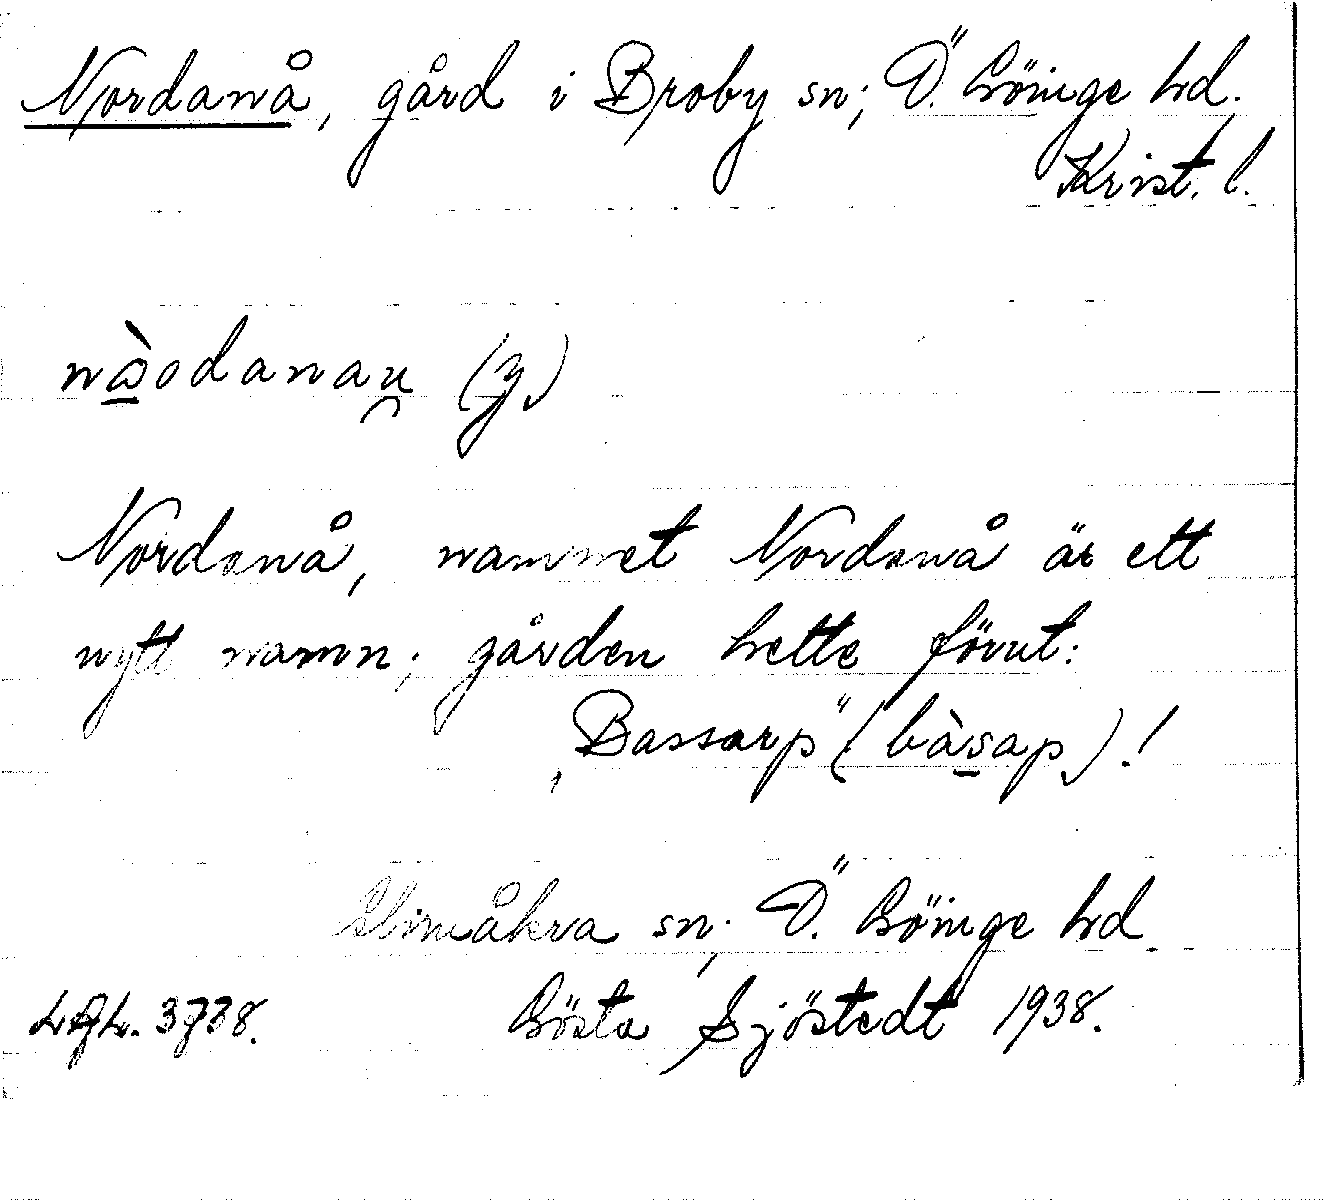 Nordanå, gård i Broby sn; Ö. Göinge hd.
Krist. l.
nàodanau̯ (y)
Nordanå, namnet Nordanå är ett
nytt namn; gården hette förut:
"Bassarp" (bàsap)!
Glimåkra sn; Ö. Göinge hd
3738.
Gösta Sjöstedt 1938.